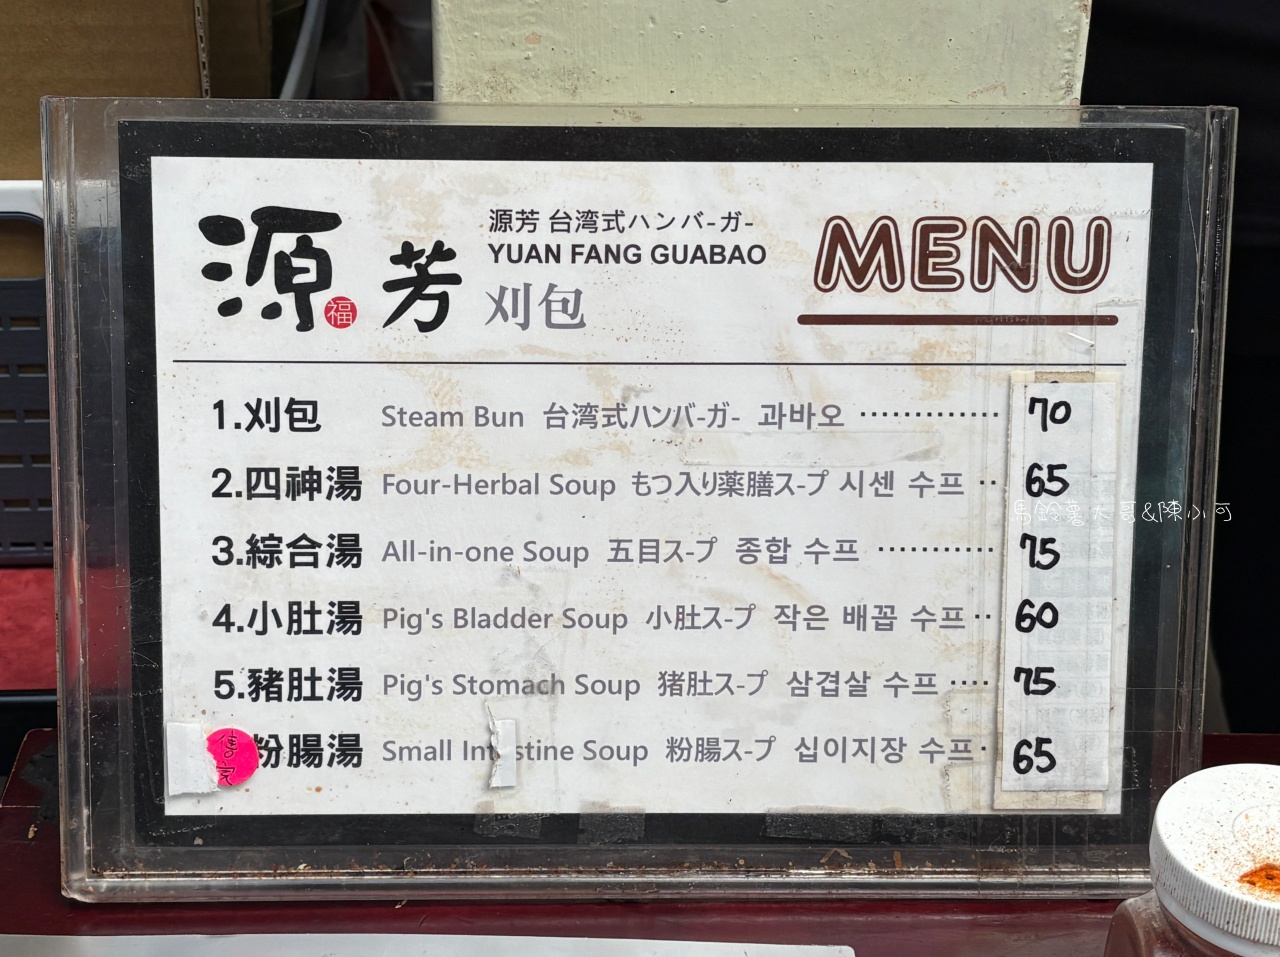 源芳
福
源芳 台湾式ハンバ-ガ-
YUAN FANG GUABAO
刈包
MENU
1.刈包 Steam Bun 台湾式ハンバ-ガ- 과바오 ············· 70
2.四神湯 Four-Herbal Soup もつ入り薬膳ス-プ 시센 수프 ·· 65
馬鈴薯大哥&陳小可
3.綜合湯 All-in-one Soup 五目ス-プ 종합 수프 ··········· 75
4.小肚湯 Pig's Bladder Soup 小肚ス-プ 작은 배꼽 수프 ·· 60
5.豬肚湯 Pig's Stomach Soup 猪肚ス-プ 삼겹살 수프 ···· 75
售完 粉腸湯 Small Intestine Soup 粉腸ス-プ 십이지장 수프 · 65